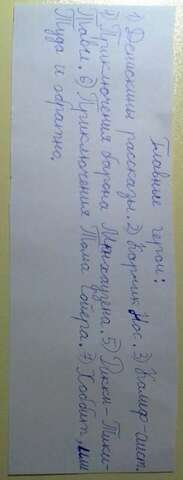 Главные герои:
1) Денискины рассказы. 2) Карлик Нос. 3) Калиф-аист.
4) Приключения барона Мюнхаузена. 5) Рикки-Тики-
Тави. 6) Приключения Тома Сойера. 7) Хоббит, или
Туда и обратно.